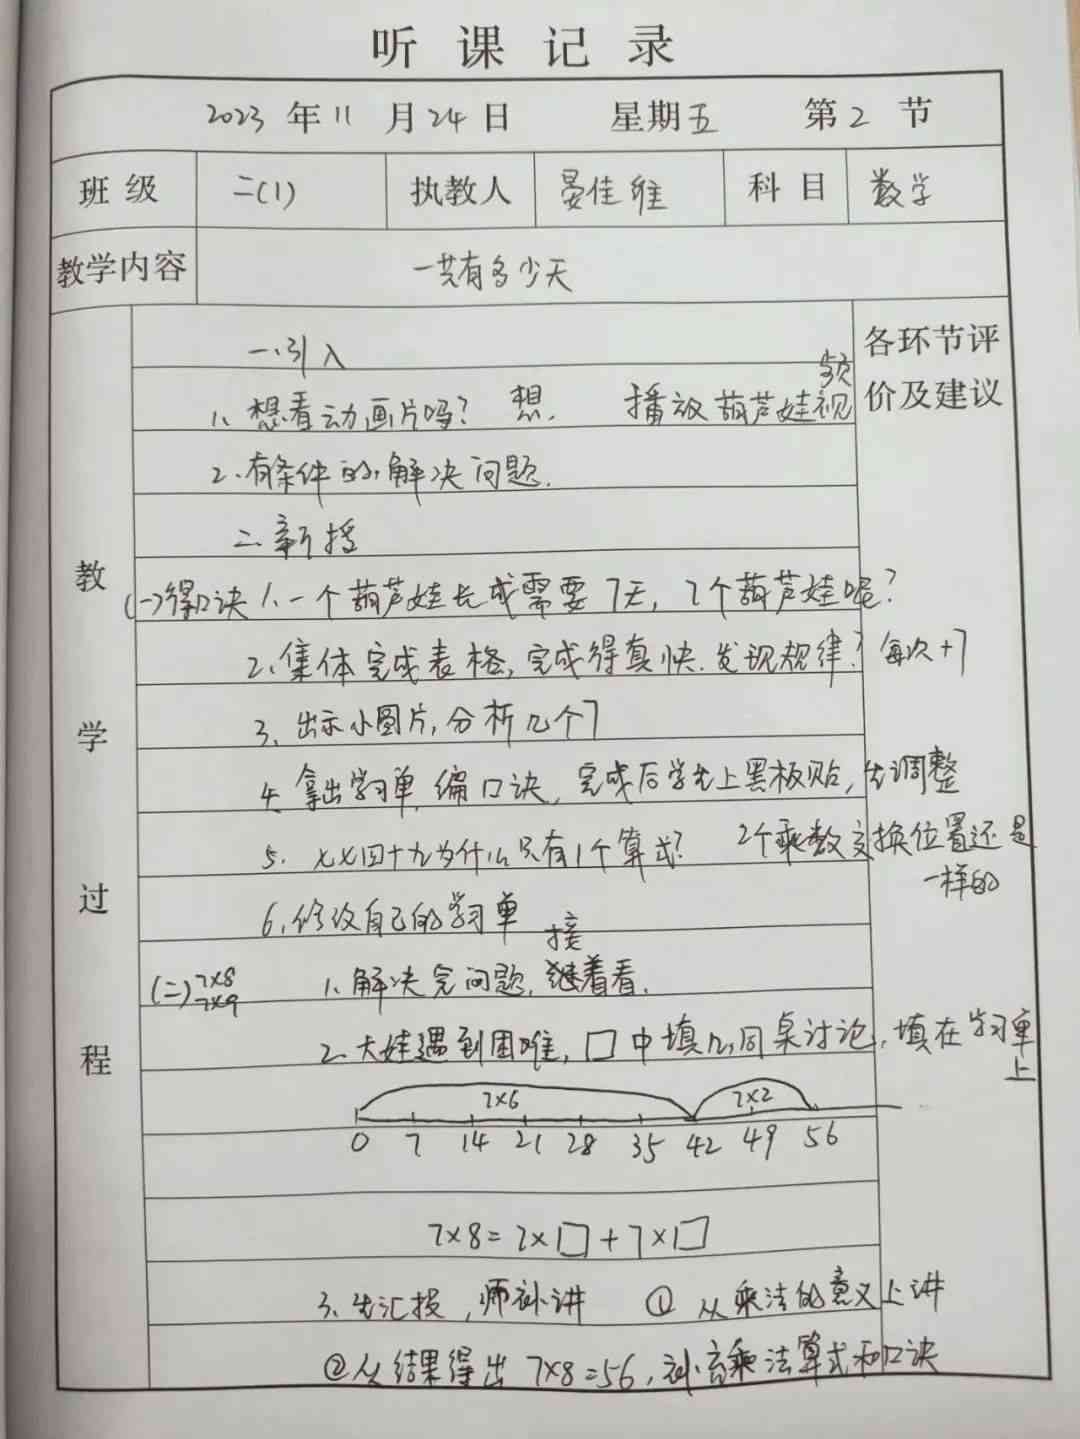 听课记录
2023 年 11 月 24 日 星期五 第 2 节
班级 二(1) 执教人 晏佳维 科目 数学
教学内容 一共有多少天
教学过程
各环节评价及建议
一、引入
1、想看动画片吗? 想. 播放葫芦娃视频
2、有条件的,解决问题.
二、新授
(一)得口诀 1、一个葫芦娃长成需要7天, 2个葫芦娃呢?
2、集体完成表格, 完成得真快. 发现规律? 每次+7
3、出示小图片, 分析几个7
4、拿出学习单, 编口诀, 完成后学生上黑板贴, 生调整
5、七七四十九为什么只有1个算式? 2个乘数交换位置还是一样的
6、修改自己的学习单
(二) 7×8 7×9 1、解决完问题, 接着看.
2、大娃遇到困难, □中填几, 同桌讨论, 填在学习单上
7×6 7×2
0 7 14 21 28 35 42 49 56
7×8=7×□+7×□
3、生汇报, 师补讲 ① 从乘法的意义上讲
②从结果得出 7×8=56, 补充乘法算式和口诀